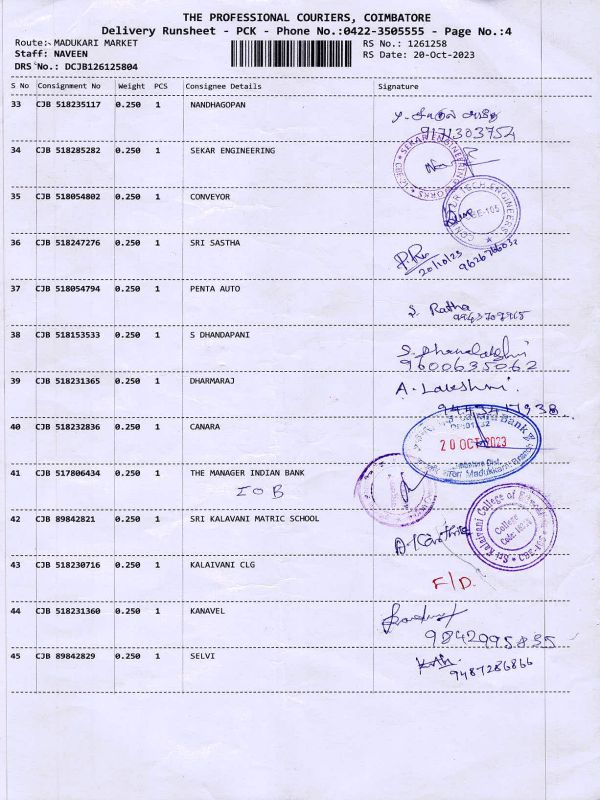 THE PROFESSIONAL COURIERS, COIMBATORE
Delivery Runsheet - PCK - Phone No.:0422-3505555 - Page No.:4
Route:- MADUKARI MARKET RS No.: 1261258
Staff: NAVEEN RS Date: 20-Oct-2023
DRS No.: DCJB126125804
S No Consignment No Weight PCS Consignee Details Signature
33 CJB 518235117 0.250 1 NANDHAGOPAN
9171303754
34 CJB 518285282 0.250 1 SEKAR ENGINEERING
SEKAR ENGINEERING WORKS
35 CJB 518054802 0.250 1 CONVEYOR
TECH ENGINEERS
CBE-105
36 CJB 518247276 0.250 1 SRI SASTHA
20/10/23 9626766032
37 CJB 518054794 0.250 1 PENTA AUTO
S. Ratha
38 CJB 518153533 0.250 1 S DHANDAPANI
S. Dhanalakshmi
9600635062
39 CJB 518231365 0.250 1 DHARMARAJ
A. Lakshmi.
40 CJB 518232836 0.250 1 CANARA
Bank
20 OCT 2023
41 CJB 517806434 0.250 1 THE MANAGER INDIAN BANK
IOB
42 CJB 89842821 0.250 1 SRI KALAVANI MATRIC SCHOOL
Sri Kalaivani College of Education
College
Code
43 CJB 518230716 0.250 1 KALAIVANI CLG
F/D.
44 CJB 518231360 0.250 1 KANAVEL
9842995835
45 CJB 89842829 0.250 1 SELVI
9487286866